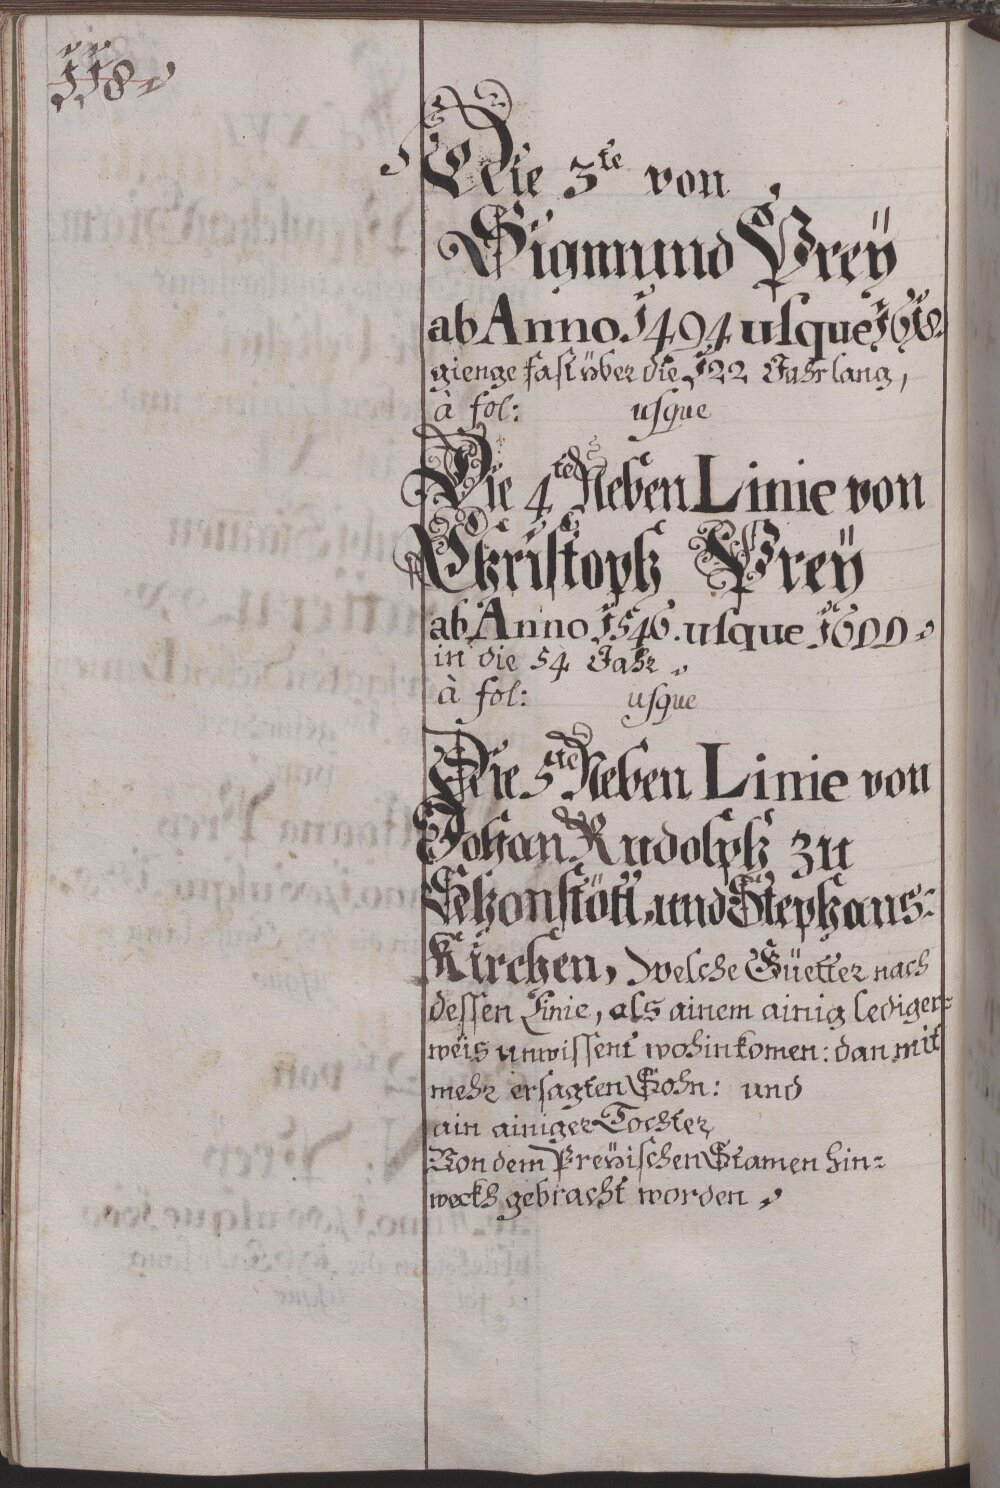 118.
Die 3te von
Sigmund Preÿ
ab Anno 1494 usque 1618.
gienge fast über die 122 Jahr lang,
à fol: usque
Die 4te Neben Linie von
Christoph Preÿ
ab Anno 1546. usque 1600.
in die 54 Jahr.
à fol: usque
Die 5te Neben Linie von
Johan Rudolph zu
und Stephans-
Kirchen, welche Güetter nach
dessen Linie, als ainem ainig lediger-
weis unwissent wohin komen: dan mit
mehr ersagten Sohn: und
ain ainiger Tochter,
Von dem Preÿischen Stamen hin-
weckh gebracht worden.